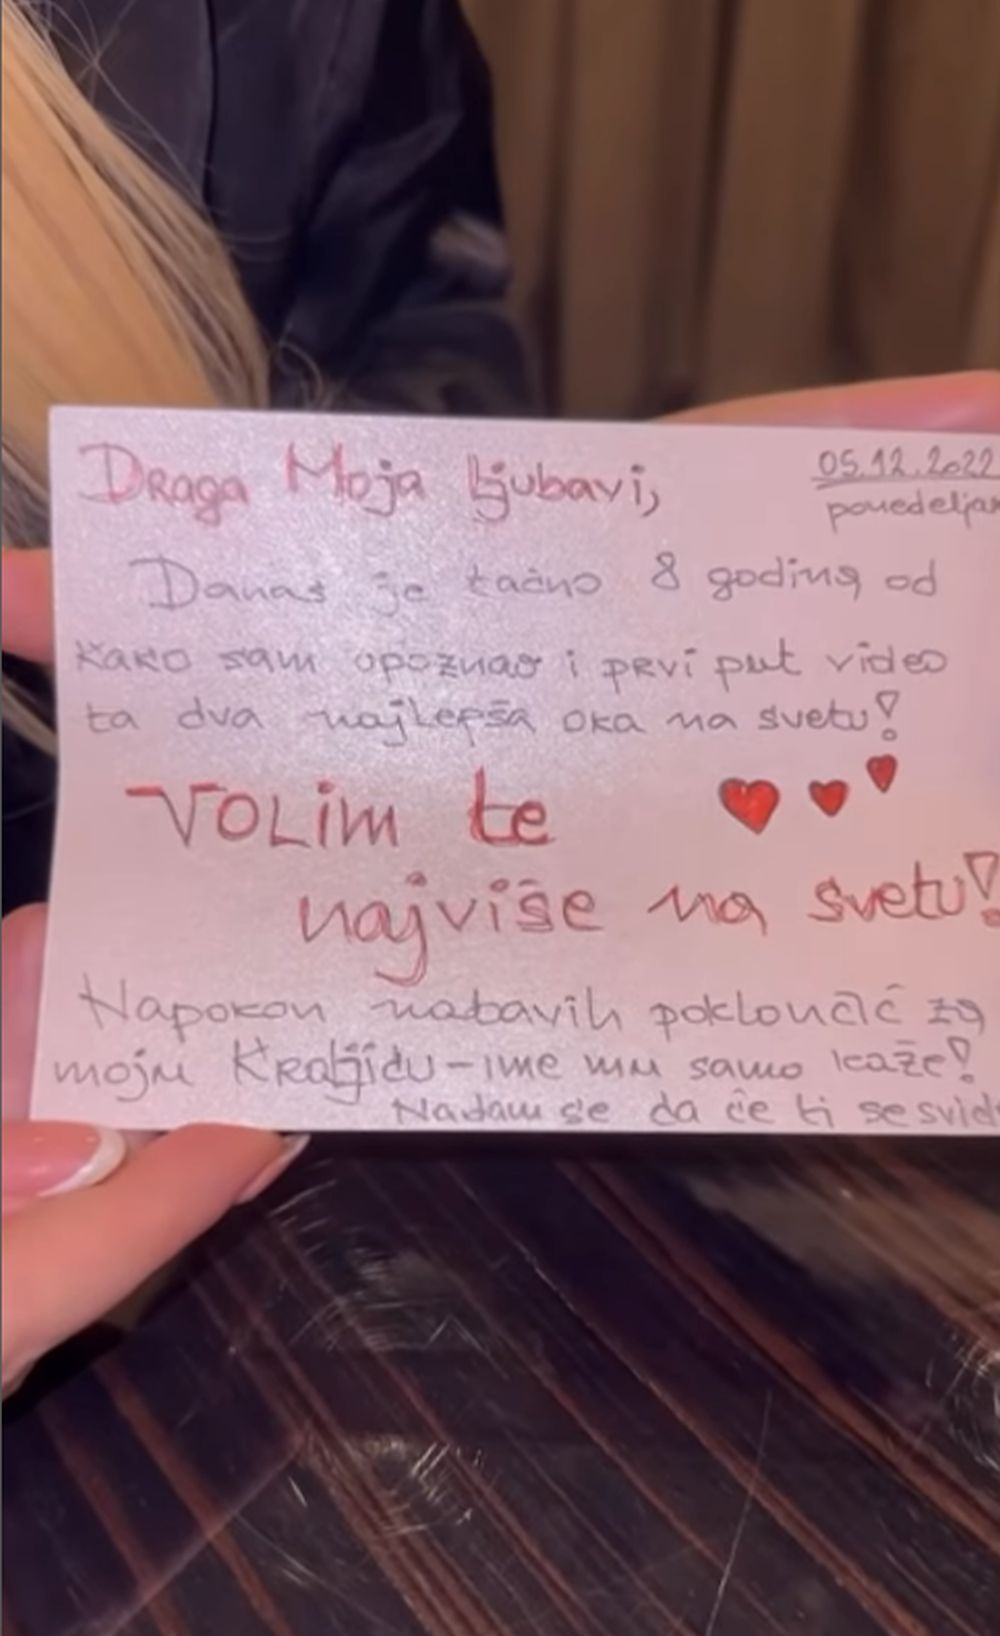 Draga Moja Ljubavi,
05.12.2022
ponedeljak
Danas je tačno 8 godina od
kako sam upoznao i prvi put video
ta dva najlepša oka na svetu!
VOLIM te
najviše na svetu!
Napokon nabavih poklončić za
moju Kraljicu - ime mu samo kaže!
Nadam se da će ti se svid